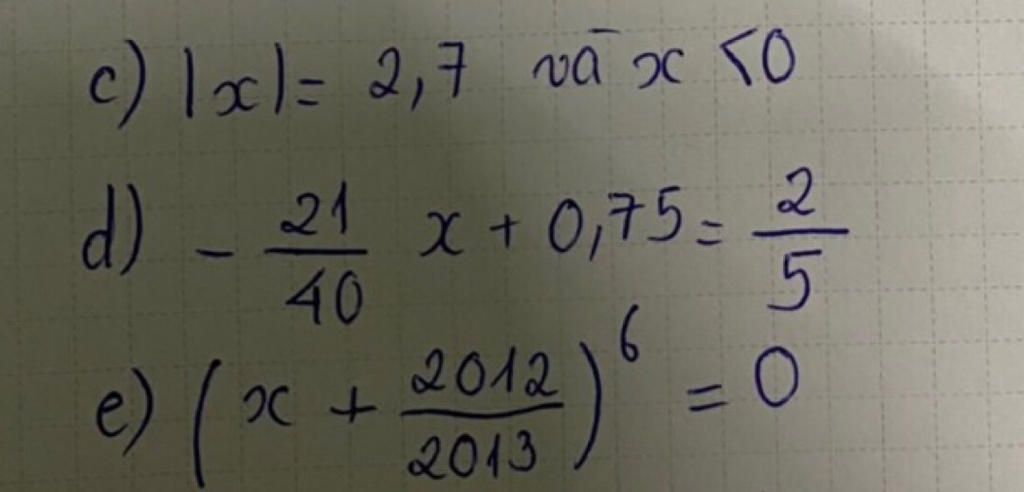 c) |x| = 2,7 và x < 0
d) - \frac{21}{40} x + 0,75 = \frac{2}{5}
e) (x + \frac{2012}{2013})^6 = 0